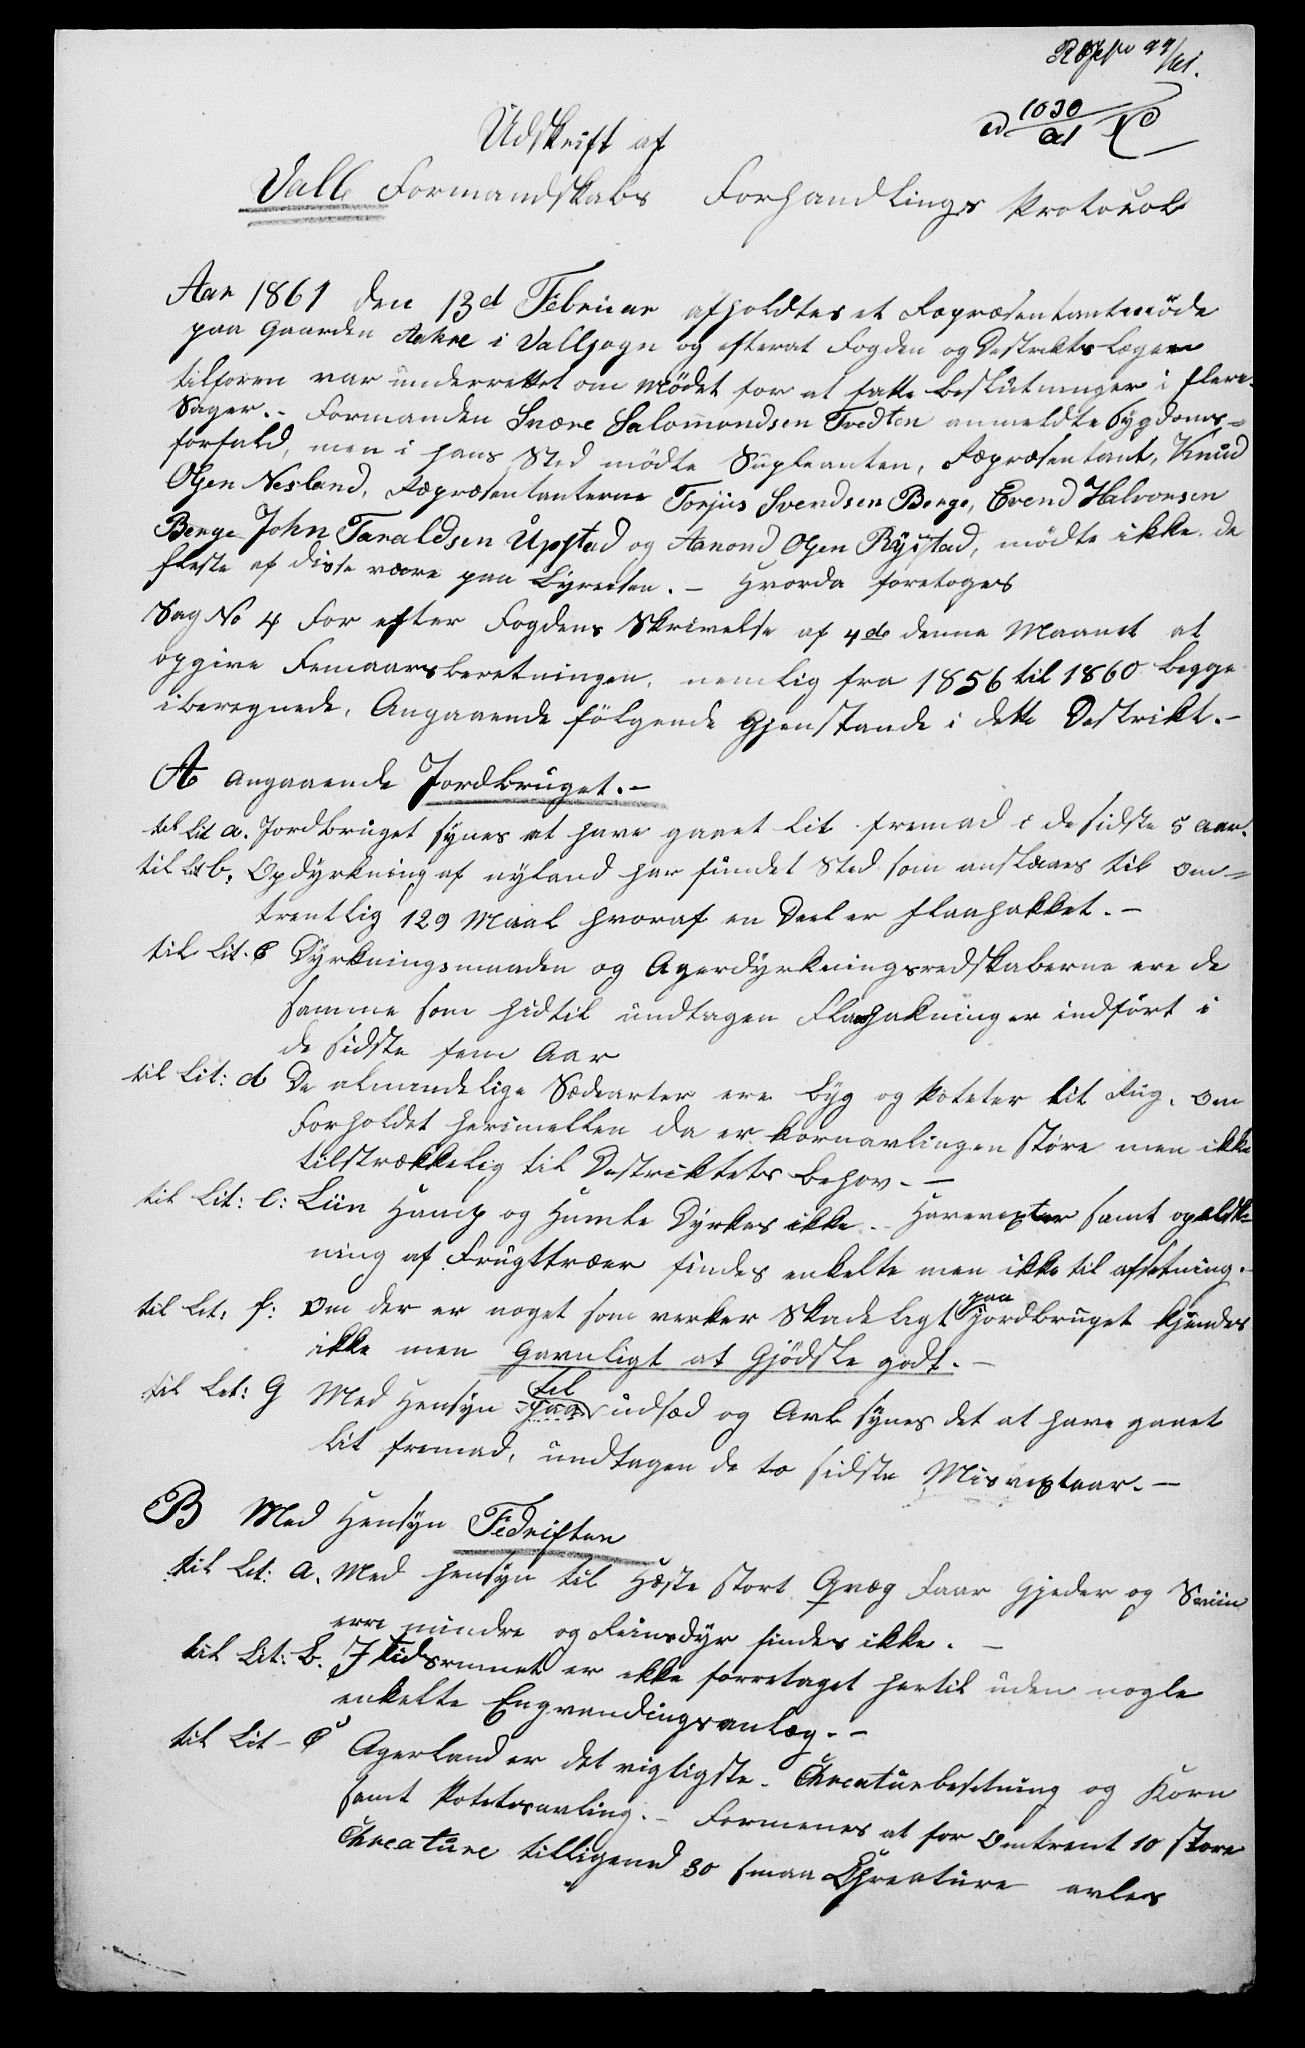 99/61.
1030
61
Udskrift af
Valle Formandskabs Forhandlings Protocol
Aar 1861 den 13d Februar afholdtes et Repræsentantmöde
paa Gaarden Aakre i Vallesogn og efterat Fogden og Destriktslægen
tilforen var underrettet om Mödet for at fatte Beslutninger i flere
Sager. - Formanden Svære Salomondsen Tvedten anmeldte Sygdoms=
forfald, men i hans Sted mödte Supleanten, Repræsentant, Knud
Olsen Nesland, Repræsentanterne Torjus Svendsen Berge, Evend Halvorsen
Berge John Taraldsen Upstad og Aanond Olsen Rystad, mödte ikke. de
fleste af disse være paa Byreisen. - Hvorda foretoges
Sag No 4 For efter Fogdens Skrivelse af 4de denne Maanet at
opgive Femaarsberetningen, nemlig fra 1856 til 1860 begge
iberegnede, Angaaende fölgende Gjenstande i dette Destrikt. -
A Angaaende Jordbruget. -
til Lit a. Jordbruget synes at have gaaet lit fremad i de sidste 5 Aar.
til Lit b. Opdyrkning af nyland har fundet Sted som anslaaes til om=
trentlig 129 Maal hvoraf en Deel er flaahakket. -
til Lit. C Dyrkningsmaaden og Agerdyrkningsredskaberne ere de
samme som hidtil undtagen Flaahakning er indfört i
de sidste fem Aar
til Lit: d De almindelige Sædearter ere Byg og Poteter lit Rug. Om
Forholdet herimellem da er kornavlingen större men ikke
tilstrækkelig til Destriktets Behov. -
til Lit: e: Liin Hamp og Humle Dyrkes ikke. - Havevexter samt opelsk-
ning af Frugttræer findes enkelte men ikke til afsetning. -
til Let: f: Om der er noget som verker Skadeligt paa Jordbruget kjendes
ikke men Gavnligt at Gjödsle godt. -
til Let: G Med Hensyn paa til udsæd og Avl synes det at have gaaet
lit fremad, undtagen de to sidste Misvextaar. -
B Med Hensyn Fedriften
til Let: a. Med hensyn til Heste stort Qvæg Faar Gjeder og Sviin
erre mindre og Reinsdyr findes ikke. -
til Lit: b. I tidsrummet er ikke forretaget hertil uden nogle
enkelte Engvandingsanlæg. -
til Lit - C Agerland er det vigtigste. Chreaturbesetning og Korn
samt Potetesavling. - Formenes at for Omtrent 10 store
Chreature tilligemed 30 smaa Chreature avles